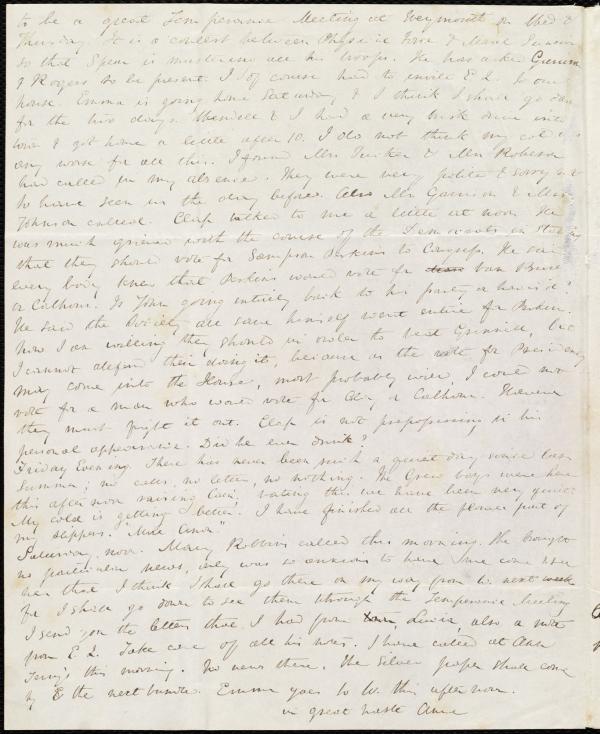 to be a great Temperance Meeting at Weymouth on Wed &
Thursday. It is a contest between Physical Force & Moral Suasion
so that Spear is mustering all his troops. He has asked Garrison
& Rogers to be present. I of course had to invite E Q. to our
house. Emma is going home Saturday, & I think I shall go down
for the two days. Wendell & I had a very brisk drive into
town & got home a little after 10. I do not think my cold is
any worse for all this. I found Mrs Tucker & Mrs Robeson
had called in my absence. They were very polite & sorry not
to have seen us the day before. Also Mr Garrison & Mrs
Johnson called. Clap talked to me a little at noon. He
was much grieved with the course of the Democrats in
that they should vote for Sampson Perkins to Congress. He said
every body knew that Perkins would vote for Van Buren
or Calhoun. Is John going entirely back to his party or how is it?
He said the Society all save himself went entire for Perkins.
Now I am willing they should in order to , but
I cannot defend their doing it, because as the vote for Presidency
may come into the House, most probably will, I could not
vote for a man who would vote for Clay or Calhoun. However
they must fight it out. Clap is not prepossessing in his
personal appearance. Did he ever drink?
Friday Evening. There has never been such a quiet day since last
Summer; no calls, no letters, no nothing. The Crew boys were here
this afternoon raising Cain; bating this we have been very quiet.
My cold is getting better. I have finished all the flower part of
my slippers. "Mite Ama"
Saturday noon. Mary Robbins called this morning. She brought
no particular news, only was so anxious to have some come
her that I think I shall go there on my way from W. next week
for I shall go down to see them through the Temperance Meeting
I send you the letters that I had from Lewis, also a note
from E Q. Take care of all his notes. I have called at Ann
Terry's this morning. No news there. The Silver paper shall come
by the next bundle. Emma goes to W. this afternoon.
in great haste Anne